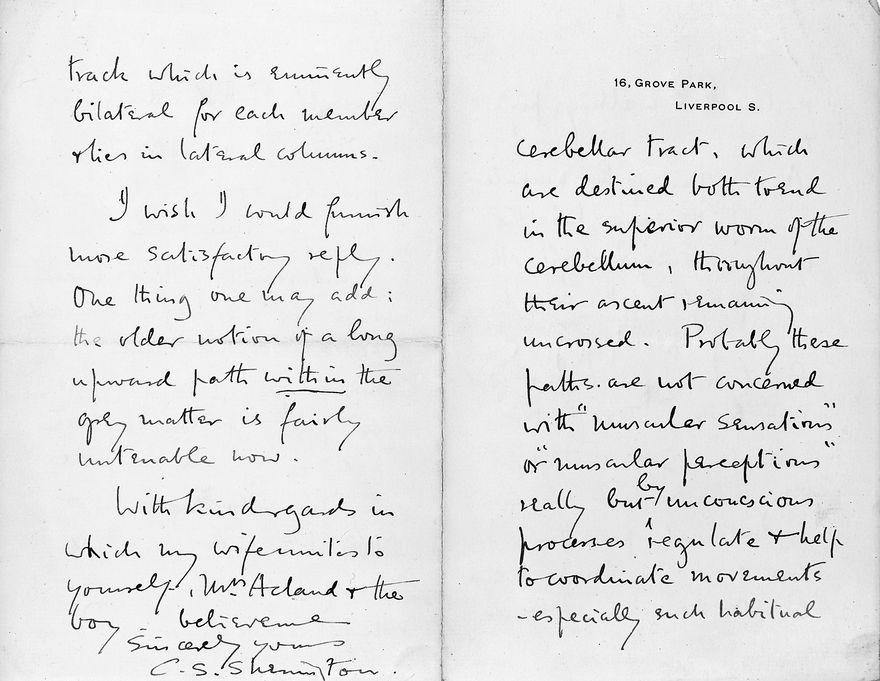 track which is eminently
bilateral for each member
& lies in lateral columns.
I wish I could furnish
more satisfactory reply.
One thing one may add:
the older notion of a long
upward path within the
grey matter is fairly
untenable now.
With kind regards in
which my wife unites to
yourself, Mrs Acland & the
boy believe me
Sincerely yours
C. S. Sherrington.
16, GROVE PARK,
LIVERPOOL S.
cerebellar tract, which
are destined both to end
in the superior worm of the
cerebellum, throughout
their ascent remaining
uncrossed. Probably these
paths are not concerned
with "muscular sensations"
or "muscular perceptions"
really but by unconscious
processes regulate & help
to coordinate movements
- especially such habitual